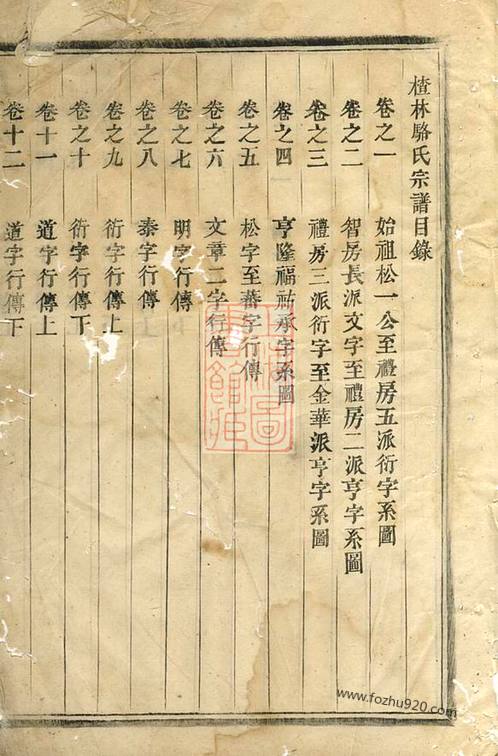 楂林駱氏宗譜目錄
卷之一 始祖松一公至禮房五派衍字系圖
卷之二 智房長派文字至禮房二派亨字系圖
卷之三 禮房三派衍字至金華派亨字系圖
卷之四 亨隆福祐承字系圖
卷之五 松字至蕃字行傳
卷之六 文章二字行傳
卷之七 明字行傳
卷之八 泰字行傳
卷之九 衍字行傳上
卷之十 衍字行傳下
卷十一 道字行傳上
卷十二 道字行傳下
www.fozhu920.com